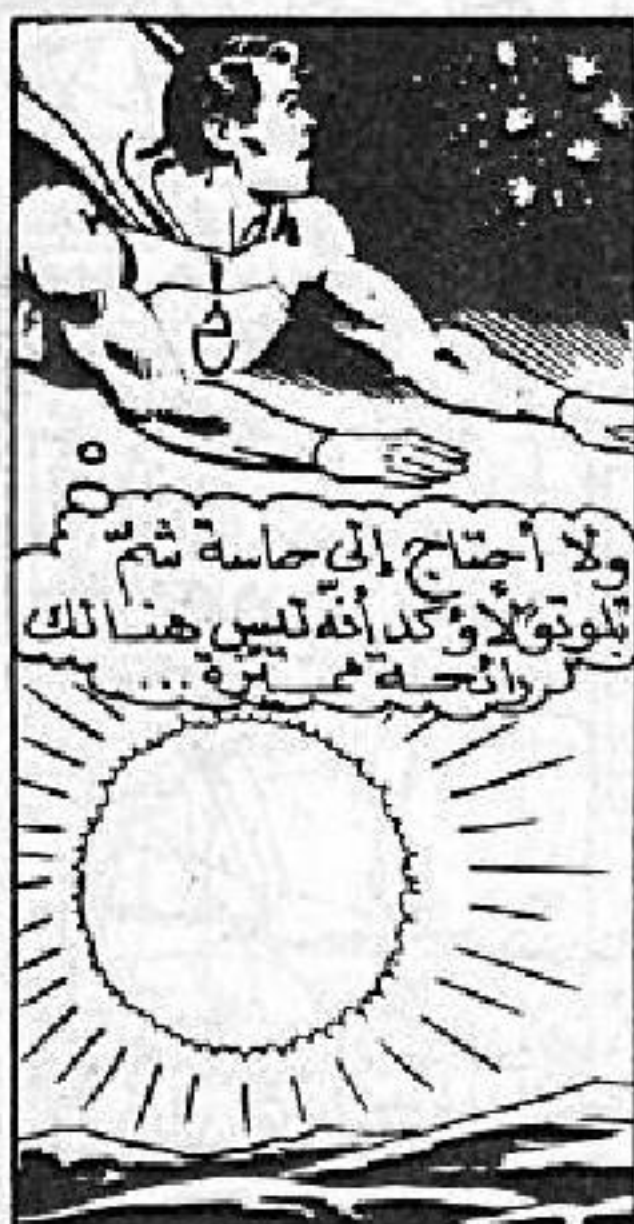 ولا أحتاج إلى حاسة شمّ
بلوتو لأؤكد أنّه ليس هنالك
رائحة مميّزة...